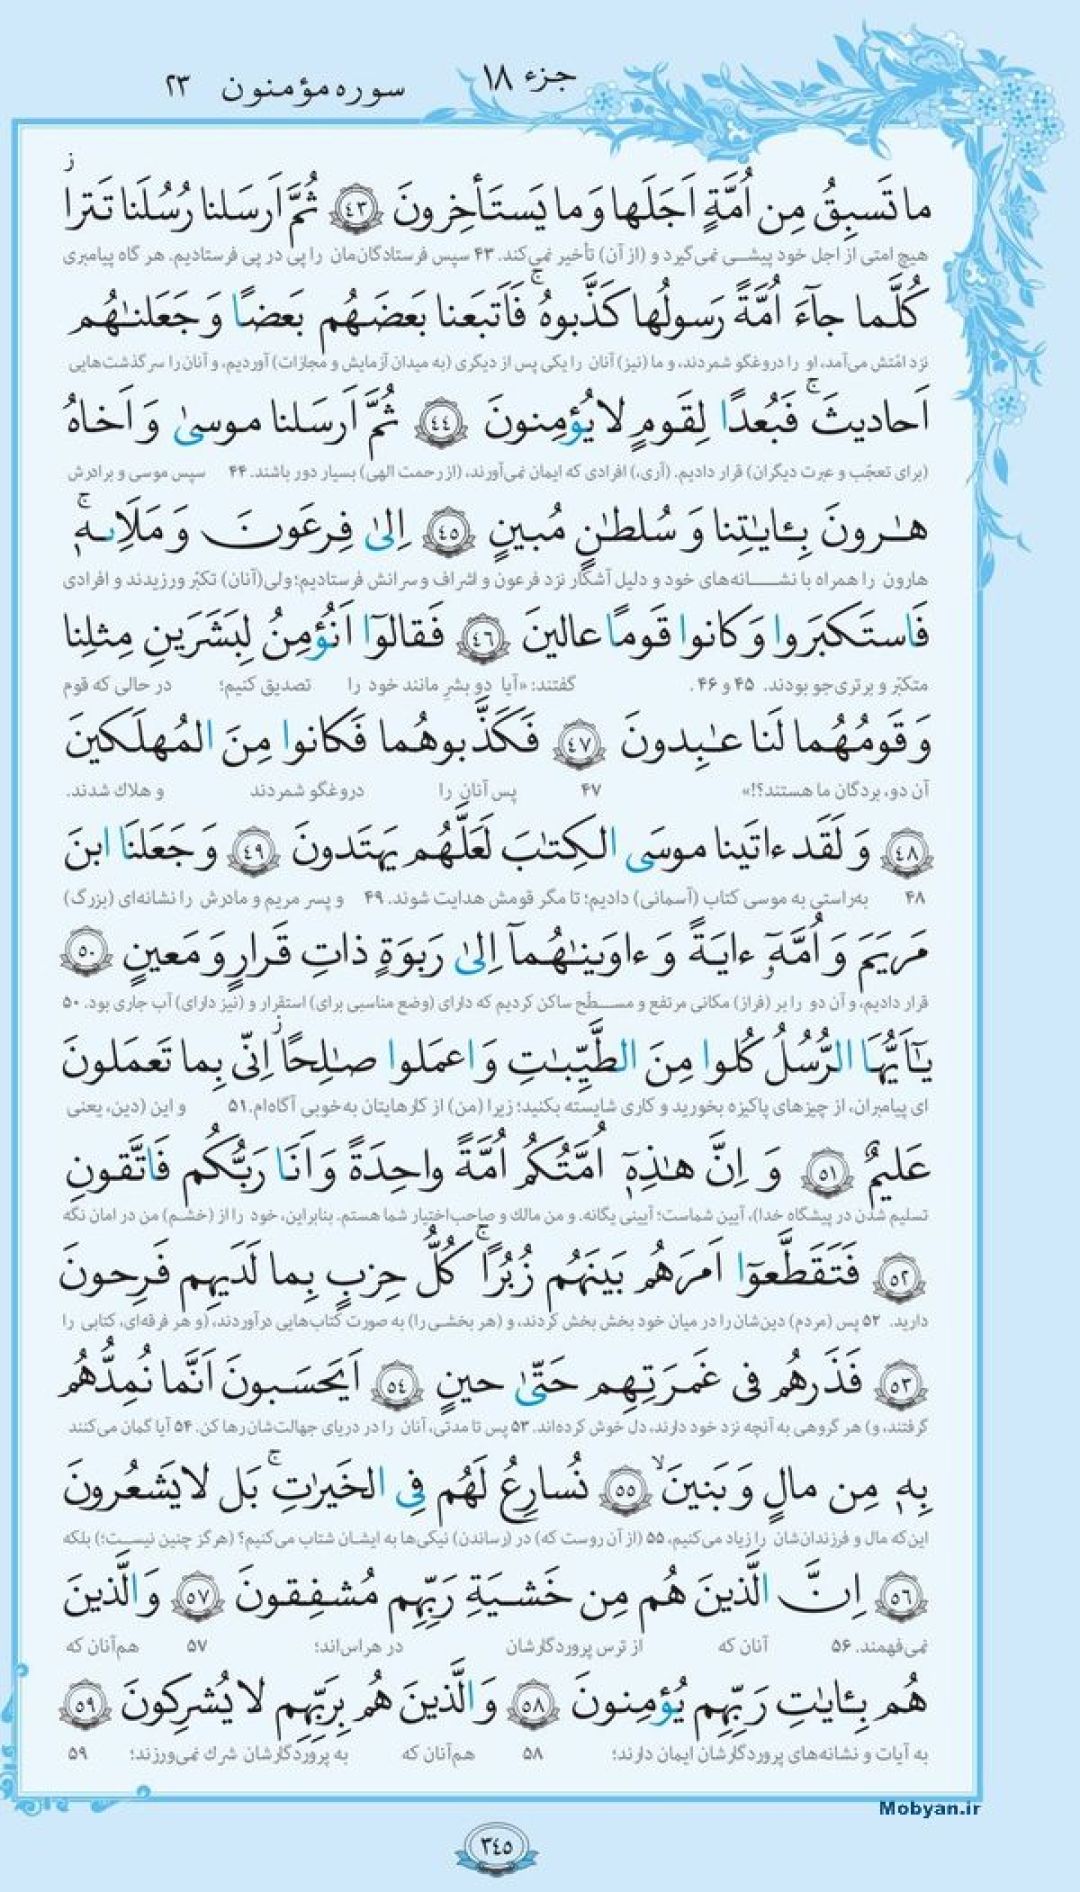 جزء ۱۸
سوره مؤمنون ۲۳
ما تَسبِقُ مِن اُمَّةٍ اَجَلَها وَ ما يَستَأخِرونَ ﴿٤٣﴾ ثُمَّ اَرسَلنا رُسُلَنا تَترا
هیچ امتی از اجل خود پیشی نمی‌گیرد و (از آن) تأخیر نمی‌کند. ۴۳ سپس فرستادگان‌مان را پی در پی فرستادیم. هر گاه پیامبری
كُلَّما جآءَ اُمَّةً رَسولُها كَذَّبوهُ ۚ فَاَتبَعنا بَعضَهُم بَعضًا وَ جَعَلنـٰهُم
نزد امّتش می‌آمد، او را دروغگو شمردند، و ما (نیز) آنان را یکی پس از دیگری (به میدان آزمایش و مجازات) آوردیم، و آنان را سرگذشت‌هایی
اَحاديثَ ۚ فَبُعدًا لِقَومٍ لا يُؤمِنونَ ﴿٤٤﴾ ثُمَّ اَرسَلنا موسىٰ وَ اَخاهُ
(برای تعجّب و عبرت دیگران) قرار دادیم. (آری،) افرادی که ایمان نمی‌آورند، (از رحمت الهی) بسیار دور باشند. ۴۴ سپس موسی و برادرش
هـٰرونَ بِـٔايـٰتِنا وَ سُلطـٰنٍ مُبينٍ ﴿٤٥﴾ اِلىٰ فِرعَونَ وَ مَلَاِيهِ ۚ
هارون را همراه با نشانه‌های خود و دلیل آشکار نزد فرعون و اشراف و سرانش فرستادیم؛ ولی (آنان) تکبّر ورزیدند و افرادی
فَاستَكبَروا وَ كانوا قَومًا عالينَ ﴿٤٦﴾ فَقالوٓا اَنُؤمِنُ لِبَشَرَينِ مِثلِنا
متکبّر و برتری‌جو بودند. ۴۵ و ۴۶. گفتند: «آیا دو بشرِ مانند خود را تصدیق کنیم؛ در حالی که قوم
وَ قَومُهُما لَنا عـٰبِدونَ ﴿٤٧﴾ فَكَذَّبوهُما فَكانوا مِنَ المُهلَكينَ
آن دو، بردگان ما هستند؟!» ۴۷ پس آنان را دروغگو شمردند و هلاك شدند.
﴿٤٨﴾ وَ لَقَد ءاتَينا موسَى الكِتـٰبَ لَعَلَّهُم يَهتَدونَ ﴿٤٩﴾ وَ جَعَلنَا ابنَ
۴۸ به‌راستی به موسی کتاب (آسمانی) دادیم؛ تا مگر قومش هدایت شوند. ۴۹ و پسر مریم و مادرش را نشانه‌ای (بزرگ)
مَريَمَ وَ اُمَّهٓ ءايَةً وَ ءاوَينـٰهُمآ اِلىٰ رَبوَةٍ ذاتِ قَرارٍ وَ مَعينٍ ﴿٥٠﴾
قرار دادیم، و آن دو را بر (فراز) مکانی مرتفع و مسطّح ساکن کردیم که دارای (وضع مناسبی برای) استقرار و (نیز دارای) آب جاری بود. ۵۰
يـٰٓاَيُّهَا الرُّسُلُ كُلوا مِنَ الطَّيِّبـٰتِ وَ اعمَلوا صـٰلِحًا ز اِنّى بِما تَعمَلونَ
ای پیامبران، از چیزهای پاکیزه بخورید و کاری شایسته بکنید؛ زیرا (من) از کارهایتان به‌خوبی آگاه‌ام. ۵۱ و این (دین، یعنی
عَليمٌ ﴿٥١﴾ وَ اِنَّ هـٰذِهٓ اُمَّتُكُم اُمَّةً واحِدَةً وَ اَنَا رَبُّكُم فَاتَّقونِ
تسلیم شدن در پیشگاه خدا)، آیین شماست؛ آیینی یگانه. و من مالك و صاحب‌اختیار شما هستم. بنابراین، خود را از (خشم) من در امان نگه
﴿٥٢﴾ فَتَقَطَّعوٓا اَمرَهُم بَينَهُم زُبُرًا ۚ كُلُّ حِزبٍ بِما لَدَيهِم فَرِحونَ
دارید. ۵۲ پس (مردم) دین‌شان را در میان خود بخش بخش کردند، و (هر بخشی را) به صورت کتاب‌هایی درآوردند، (و هر فرقه‌ای، کتابی را
﴿٥٣﴾ فَذَرهُم فى غَمرَتِهِم حَتّىٰ حينٍ ﴿٥٤﴾ اَيَحسَبونَ اَنَّما نُمِدُّهُم
گرفتند، و) هر گروهی به آنچه نزد خود دارند، دل خوش کرده‌اند. ۵۳ پس تا مدتی، آنان را در دریای جهالت‌شان رها کن. ۵۴ آیا گمان می‌کنند
بِهٖ مِن مالٍ وَ بَنينَ ۙ ﴿٥٥﴾ نُسارِعُ لَهُم فِى الخَيرٰتِ ۚ بَل لا يَشعُرونَ
این‌که مال و فرزندان‌شان را زیاد می‌کنیم، ۵۵ (از آن روست که) در (رساندن) نیکی‌ها به ایشان شتاب می‌کنیم؟ (هرگز چنین نیست؛) بلکه
﴿٥٦﴾ اِنَّ الَّذينَ هُم مِن خَشيَةِ رَبِّهِم مُشفِقونَ ﴿٥٧﴾ وَ الَّذينَ
نمی‌فهمند. ۵۶ آنان که از ترس پروردگارشان در هراس‌اند؛ ۵۷ هم‌آنان که
هُم بِـٔايـٰتِ رَبِّهِم يُؤمِنونَ ﴿٥٨﴾ وَ الَّذينَ هُم بِرَبِّهِم لا يُشرِكونَ ﴿٥٩﴾
به آیات و نشانه‌های پروردگارشان ایمان دارند؛ ۵۸ هم‌آنان که به پروردگارشان شرك نمی‌ورزند؛ ۵۹
Mobyan.ir
۳٤۵